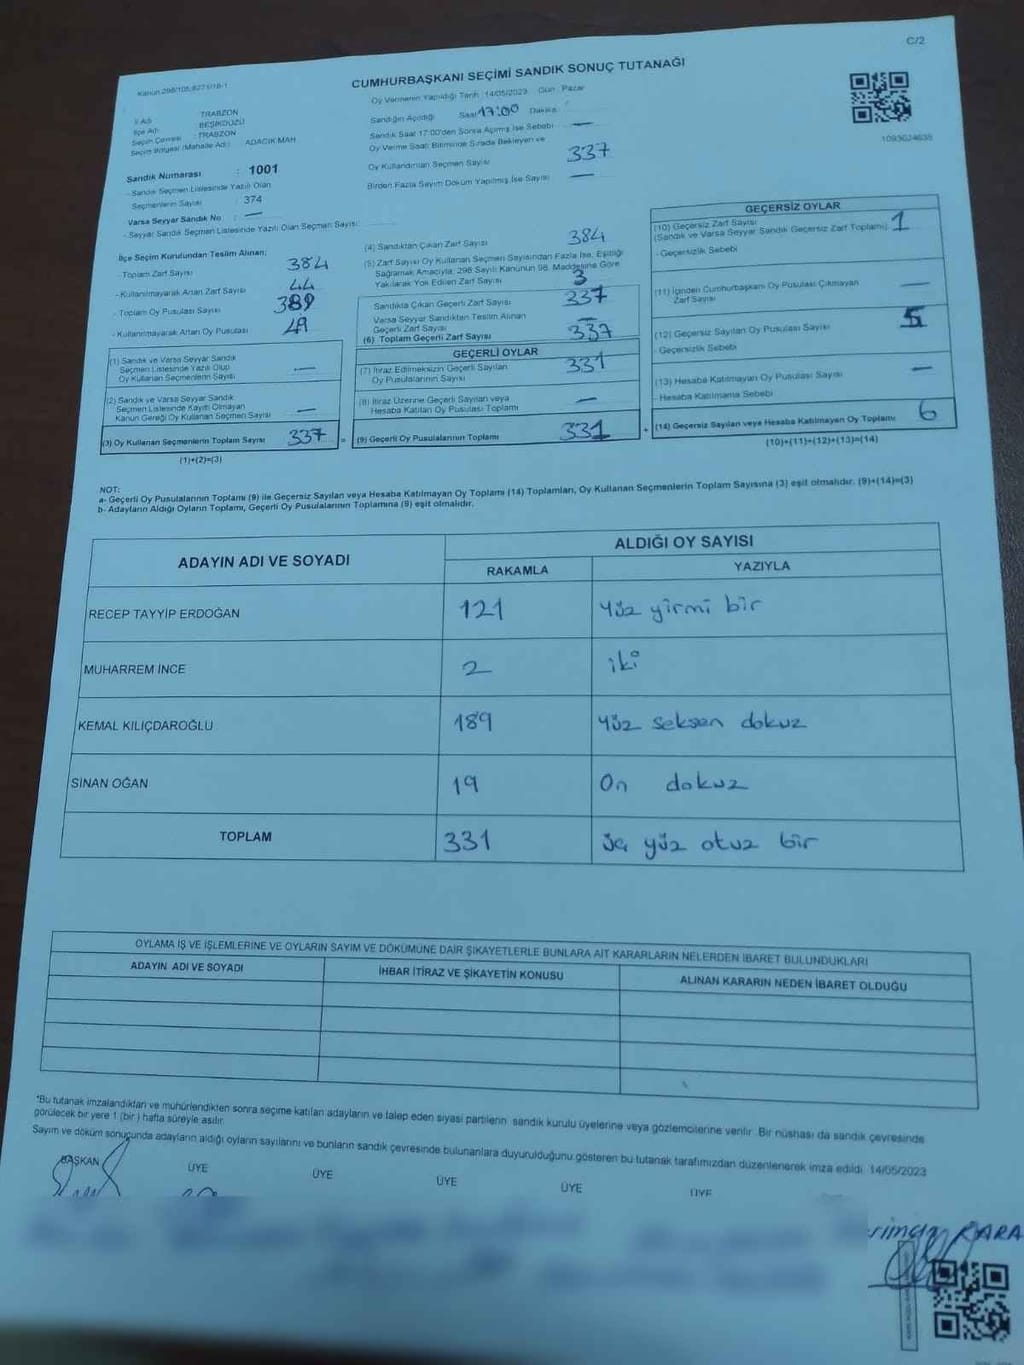 C/2
Kanun 298/105,8271/16-1
CUMHURBAŞKANI SEÇİMİ SANDIK SONUÇ TUTANAĞI
Oy Vermenin Yapıldığı Tarih :14/05/2023 Gün : Pazar
İl Adı : TRABZON
İlçe Adı : BEŞİKDÜZÜ
Seçim Çevresi : TRABZON
Seçim Bölgesi (Mahalle Adı) : ADACIK MAH
Sandığın Açıldığı Saat 17:00 Dakika :
Sandık Saat 17:00'den Sonra Açılmış İse Sebebi —
Oy Verme Saati Bitiminde Sırada Bekleyen ve
Oy Kullandırılan Seçmen Sayısı 337
Birden Fazla Sayım Döküm Yapılmış İse Sayısı —
1093624635
Sandık Numarası : 1001
- Sandık Seçmen Listesinde Yazılı Olan
Seçmenlerin Sayısı : 374
Varsa Seyyar Sandık No : —
- Seyyar Sandık Seçmen Listesinde Yazılı Olan Seçmen Sayısı:
İlçe Seçim Kurulundan Teslim Alınan;
- Toplam Zarf Sayısı 384
- Kullanılmayarak Artan Zarf Sayısı 44
- Toplam Oy Pusulası Sayısı 389
- Kullanılmayarak Artan Oy Pusulası 49
(1) Sandık ve Varsa Seyyar Sandık
Seçmen Listesinde Yazılı Olup
Oy Kullanan Seçmenlerin Sayısı —
(2) Sandık ve Varsa Seyyar Sandık
Seçmen Listesinde Kayıtlı Olmayan
Kanun Gereği Oy Kullanan Seçmen Sayısı —
(3) Oy Kullanan Seçmenlerin Toplam Sayısı 337 =
(1)+(2)=(3)
(4) Sandıktan Çıkan Zarf Sayısı 384
(5) Zarf Sayısı Oy Kullanan Seçmen Sayısından Fazla İse, Eşitliği
Sağlamak Amacıyla; 298 Sayılı Kanunun 98. Maddesine Göre
Yakılarak Yok Edilen Zarf Sayısı 3
- Sandıkta Çıkan Geçerli Zarf Sayısı 337
Varsa Seyyar Sandıktan Teslim Alınan
Geçerli Zarf Sayısı —
(6) Toplam Geçerli Zarf Sayısı 337
GEÇERLİ OYLAR
(7) İtiraz Edilmeksizin Geçerli Sayılan
Oy Pusulalarının Sayısı 331
(8) İtiraz Üzerine Geçerli Sayılan veya
Hesaba Katılan Oy Pusulası Toplamı —
(9) Geçerli Oy Pusulalarının Toplamı 331 +
GEÇERSİZ OYLAR
(10) Geçersiz Zarf Sayısı
(Sandık ve Varsa Seyyar Sandık Geçersiz Zarf Toplamı) 1
- Geçersizlik Sebebi
(11) İçinden Cumhurbaşkanı Oy Pusulası Çıkmayan
Zarf Sayısı —
(12) Geçersiz Sayılan Oy Pusulası Sayısı 5
- Geçersizlik Sebebi
(13) Hesaba Katılmayan Oy Pusulası Sayısı —
- Hesaba Katılmama Sebebi
(14) Geçersiz Sayılan veya Hesaba Katılmayan Oy Toplamı 6
(10)+(11)+(12)+(13)=(14)
NOT:
a- Geçerli Oy Pusulalarının Toplamı (9) ile Geçersiz Sayılan veya Hesaba Katılmayan Oy Toplamı (14) Toplamları, Oy Kullanan Seçmenlerin Toplam Sayısına (3) eşit olmalıdır. (9)+(14)=(3)
b- Adayların Aldığı Oyların Toplamı, Geçerli Oy Pusulalarının Toplamına (9) eşit olmalıdır.
ADAYIN ADI VE SOYADI
ALDIĞI OY SAYISI
RAKAMLA YAZIYLA
RECEP TAYYİP ERDOĞAN 121 Yüz yirmi bir
MUHARREM İNCE 2 iki
KEMAL KILIÇDAROĞLU 189 Yüz seksen dokuz
SİNAN OĞAN 19 On dokuz
TOPLAM 331 üç yüz otuz bir
OYLAMA İŞ VE İŞLEMLERİNE VE OYLARIN SAYIM VE DÖKÜMÜNE DAİR ŞİKAYETLERLE BUNLARA AİT KARARLARIN NELERDEN İBARET BULUNDUKLARI
ADAYIN ADI VE SOYADI İHBAR İTİRAZ VE ŞİKAYETİN KONUSU ALINAN KARARIN NEDEN İBARET OLDUĞU
"Bu tutanak imzalandıktan ve mühürlendikten sonra seçime katılan adayların ve talep eden siyasi partilerin sandık kurulu üyelerine veya gözlemcilerine verilir. Bir nüshası da sandık çevresinde
görülecek bir yere 1 (bir) hafta süreyle asılır.
Sayım ve döküm sonucunda adayların aldığı oyların sayılarını ve bunların sandık çevresinde bulunanlara duyurulduğunu gösteren bu tutanak tarafımızdan düzenlenerek imza edildi. 14/05/2023
BAŞKAN ÜYE ÜYE ÜYE ÜYE ÜYE
KARA